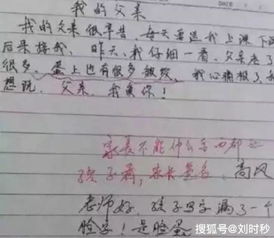 我的父亲
我的父亲很辛苦，每天要送我上课 下课
后来接我。昨天，我仔细一看，父亲老了
很多，蛋上也有很多皱纹，我心痛极了
想说，父亲，我爱你！
家长不能什么东西都让
孩子看，末长签名：高风
老师好，孩子写字漏了一个
脸字！是脸蛋
搜狐号@刘时秒